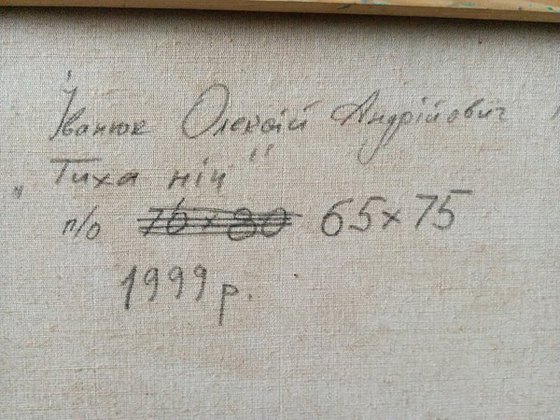 Іванюк Олексій Андрійович,
„Тиха ніч"
п/о 70×80 65×75
1999 р.